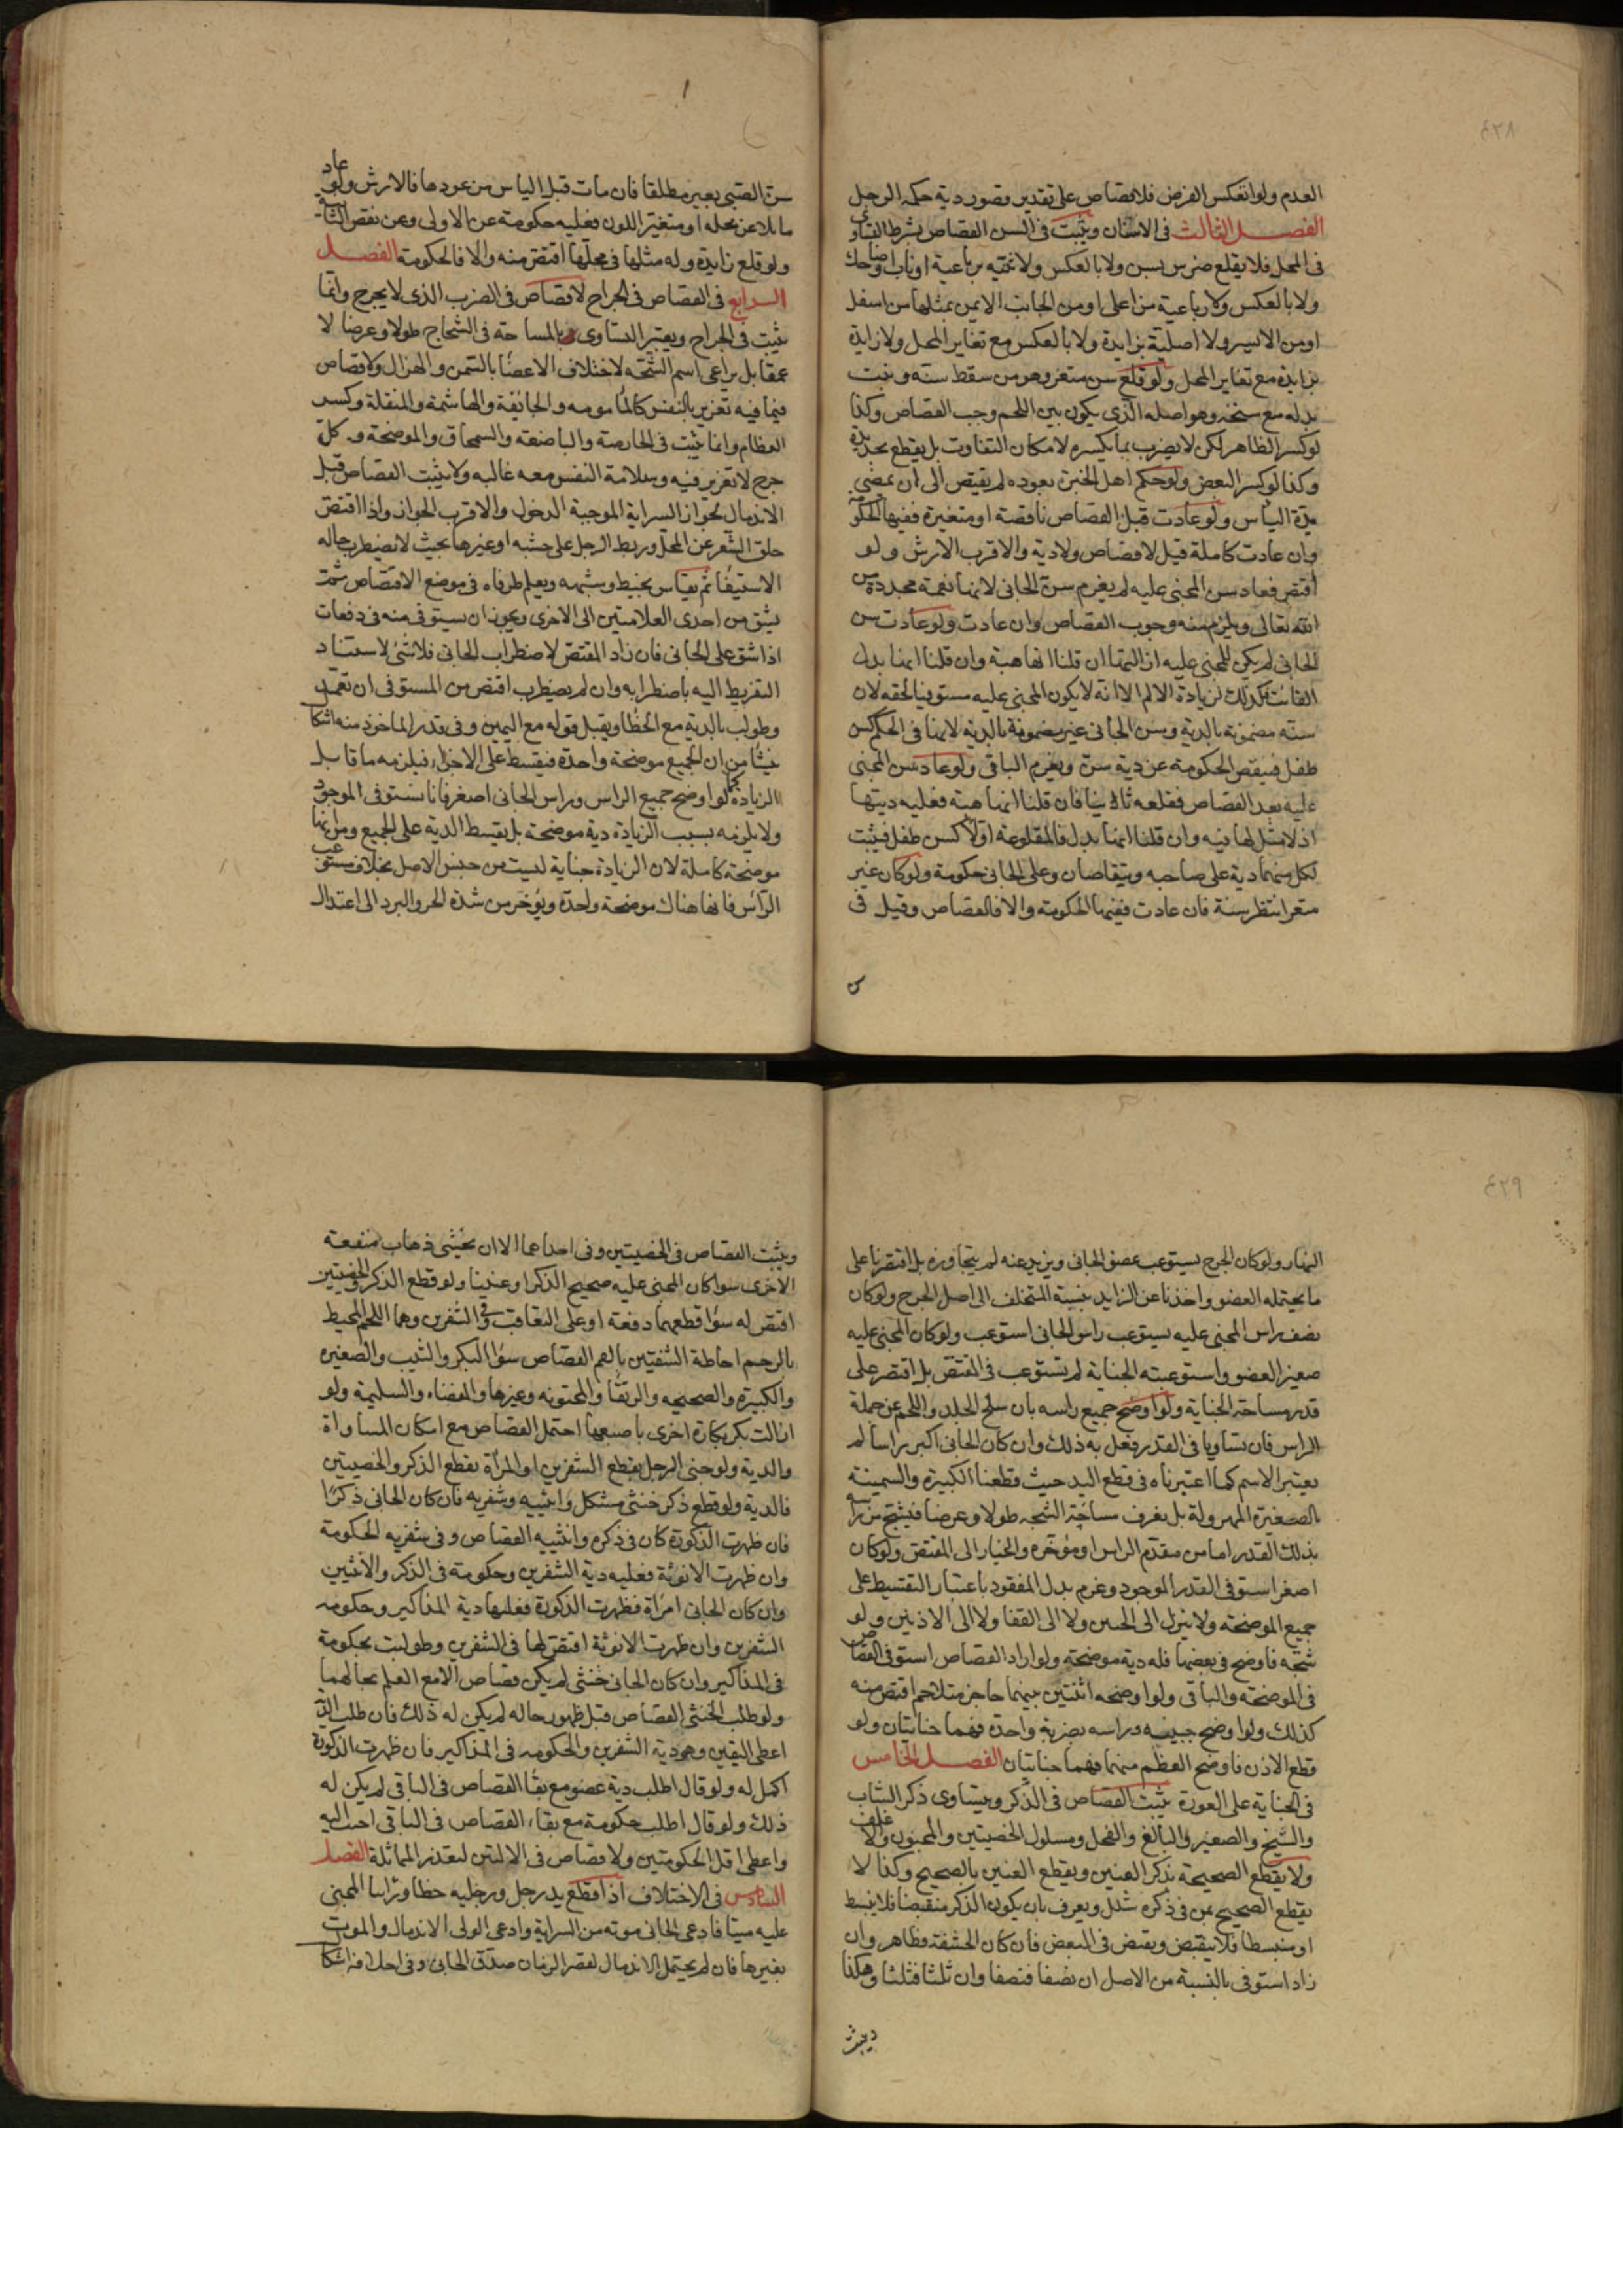 ٤٢٨
العدم ولو انعكس الفرض فلا قصاص على تقدير قصور دية حكمه الرجل
الفصل الثالث في الاسنان ويثبت في السن القصاص بشرط التساوي
في المحل فلا يقلع ضرس بسن ولا بالعكس ولا ثنيه برباعية او ناب او ضاحك
ولا بالعكس ولا رباعية من اعلى او من الجانب الايمن بمثلها من اسفل
او من الايسر ولا اصلية بزايدة ولا بالعكس مع تغاير المحل ولا زايدة
بزايدة مع تغاير المحل ولو قلع سن متغر وهو من سقط سنه ونبت
بدله مع سنخه وهو اصله الذي يكون بين اللحم وجب القصاص وكذا
لو كسر الظاهر لكن لا يضرب بما يكسره لامكان التفاوت بل يقطع بحديدة
وكذا لو كسر البعض ولو حكم اهل الخبرة بعوده لم يقتص الى ان يمضي
مدة الياس ولو عادت قبل القصاص ناقصة او متغيرة ففيها الحكومة
وان عادت كاملة قيل لا قصاص ولا دية والاقرب الارش ولو
اقتص فعاد سن المجنى عليه لم يغرم سن الجاني لانها نعمة مجددة من
الله تعالى ويلزم منه وجوب القصاص وان عادت ولو عادت سن
الجاني لم يكن للمجنى عليه ازالتها ان قلنا انها هبة وان قلنا انها بدل
الفائت فكذلك لزيادة الالم الا انه لا يكون المجنى عليه مستوفيا لحقه لان
سنه مضمونة بالدية وسن الجاني غير مضمونة بالدية لانها في الحكم كسن
طفل فينقص الحكومة عن دية سن ويغرم الباقي ولو عاد سن المجنى
عليه بعد القصاص فقلعه ثانيا فان قلنا انها هبة فعليه ديتها
اذ لا مثل لها فيه وان قلنا انها بدل فالمقلوعة اولا كسن طفل فيثبت
لكل منهما دية على صاحبه ويتقاصان وعلى الجاني حكومة ولو كان غير
متغر انتظر سنة فان عادت ففيها الحكومة والا فالقصاص وقيل في
س
سن الصبي بعير مطلقا فان مات قبل الياس من عودها فالارش ولو عاد
مايلا عن محله او متغير اللون فعليه حكومة عن الاولى وعن نقص الثانية
ولو قلع زايدة وله مثلها في محلها اقتص منه والا فالحكومة الفصل
الرابع في القصاص في الجراح لا قصاص في الضرب الذي لا يجرح وانما
يثبت في الجراح ويعتبر التساوي بالمساحة في الشجاج طولا وعرضا لا
عمقا بل يراعى اسم الشجة لاختلاف الاعضا بالسمن والهزال ولا قصاص
فيما فيه تغرير بالنفس كالمأمومه والجائفة والهاشمة والمنقلة وكسر
العظام وانما يثبت في الحارصة والباضعة والسمحاق والموضحة وكل
جرح لا تغرير فيه وسلامة النفس معه غالبه ولا يثبت القصاص قبل
الاندمال لجواز السراية الموجبة الدخول والاقرب الجواز واذا اقتص
حلق الشعر عن المحل وربط الرجل على خشبه او غيرها بحيث لا يضطرب حاله
الاستيفا ثم يقاس بخيط وشبهه ويعلم طرفاه في موضع الاقتصاص ثم
يشق من احدى العلامتين الى الاخرى ويجوز ان يستوفى منه في دفعات
اذا شق على الجاني فان زاد المقتص لاضطراب الجاني فلا شئ لاستناد
التفريط اليه باضطرابه وان لم يضطرب اقتص من المستوفى ان تعمد
وطولب بالدية مع الخطأ ويقبل قوله مع اليمين وفي قدر الماخوذ منه اشكال
ينشأ من ان الجميع موضحة واحدة فيقسط على الاجزاء فيلزمه ما قابل
الزيادة كما لو اوضح جميع الراس وراس الجاني اصغر فانا نستوفى الموجود
ولا يلزمه بسبب الزيادة دية موضحة بل يقسط الدية على الجميع ومن انها
موضحة كاملة لان الزيادة جناية ليست من جنس الاصل بخلاف مستوعب
الراس فانها هناك موضحة واحدة ويؤخر من شدة الحر والبرد الى اعتدال
٤٢٩
النهار ولو كان الجرح يستوعب عضو الجاني ويزيد عنه لم يتجاوزه بل اقتصرنا على
ما يحتمله العضو واخذنا عن الزايد بنسبة المتخلف الى اصل الجرح ولو كان
نصف راس المجنى عليه يستوعب راس الجاني استوعب ولو كان المجنى عليه
صغير العضو واستوعبته الجناية لم تستوعب في المقتص بل اقتصر على
قدر مساحة الجناية ولو اوضح جميع راسه بان سلخ الجلد واللحم عن جملة
الراس فان تساويا في القدر فعل به ذلك وان كان الجاني اكبر راسا لم
يعتبر الاسم كما اعتبرناه في قطع اليد حيث قطعنا الكبيرة والسمينة
بالصغيرة المهزولة بل يعرف مساحة الشجة طولا وعرضا فيشج من راسه
بذلك القدر اما من مقدم الراس او مؤخره والخيار الى المقتص ولو كان
اصغر استوفى القدر الموجود وغرم بدل المفقود باعتبار التقسيط على
جميع الموضحة ولا ينزل الى الجبين ولا الى القفا ولا الى الاذنين ولو
شجه فاوضح في بعضها فله دية موضحة ولو اراد القصاص استوفى القصاص
في الموضحه والباقي ولو اوضحه اثنتين بينهما حاجز متلاحم اقتص منه
كذلك ولو اوضح جبينه وراسه بضربة واحدة فهما جنايتان ولو
قطع الاذن فاوضح العظم منها فهما جنايتان الفصل الخامس
في الجناية على العورة يثبت القصاص في الذكر ويتساوى ذكر الشاب
والشيخ والصغير والبالغ والفحل ومسلول الخصيتين والمجنون والاغلف
ولا يقطع الصحيحة بذكر العنين ويقطع العنين بالصحيح وكذا لا
يقطع الصحيح بمن في ذكره شلل ويعرف بان يكون الذكر منقبضا فلا ينبسط
او منبسطا فلا ينقبض ويقتص في البعض فان كان الحشفة فظاهر وان
زاد استوفى بالنسبة من الاصل ان نصفا فنصفا وان ثلثا فثلثا وهكذا
ويثبت
ويثبت القصاص في الخصيتين وفي احداهما الا ان يخشى ذهاب منفعة
الاخرى سوا كان المجنى عليه صحيح الذكر او عنينا ولو قطع الذكر والخصيتين
اقتص له سوا قطعهما دفعة او على التعاقب وفي الشفرين وهما اللحم المحيط
بالرحم احاطة الشفتين بالفم القصاص سوا البكر والثيب والصغيره
والكبيرة والصحيحه والرتقا والمختونه وغيرها والمفضاه والسليمة ولو
ازالت بكر بكارة اخرى باصبعها احتمل القصاص مع امكان المساواة
والدية ولو جنى الرجل بقطع الشفرين او المرأة بقطع الذكر والخصيتين
فالدية ولو قطع ذكر خنثى مشكل وانثييه وشفريه فان كان الجاني ذكرا
فان ظهرت الذكورة كان في ذكره وانثييه القصاص وفي شفريه الحكومة
وان ظهرت الانوثة فعليه دية الشفرين وحكومة في الذكر والانثيين
وان كان الجاني امراة فظهرت الذكورة فعليها دية المذاكير وحكومه
الشفرين وان ظهرت الانوثة اقتص لها في الشفرين وطولبت بحكومة
في المذاكير وان كان الجاني خنثى لم يكن قصاص الا مع العلم بحالهما
ولو طلب الخنثى القصاص قبل ظهور حاله لم يكن له ذلك فان طلب الدية
اعطى اليقين وهو دية الشفرين والحكومه في المذاكير فان ظهرت الذكورة
اكمل له ولو قال اطلب دية عضو مع بقا القصاص في الباقي لم يكن له
ذلك ولو قال اطلب حكومة مع بقاء القصاص في الباقي اجيب اليه
واعطى اقل الحكومتين ولا قصاص في الاليتين لتعذر المماثلة الفصل
السادس في الاختلاف اذا قطع يد رجل ورجليه خطا وتراسا المجنى
عليه ميتا فادعى الجاني موته من السراية وادعى الولي الاندمال والموت
بغيرها فان لم يحتمل الاندمال لقصر الزمان صدق الجاني وفي احلافه اشكال